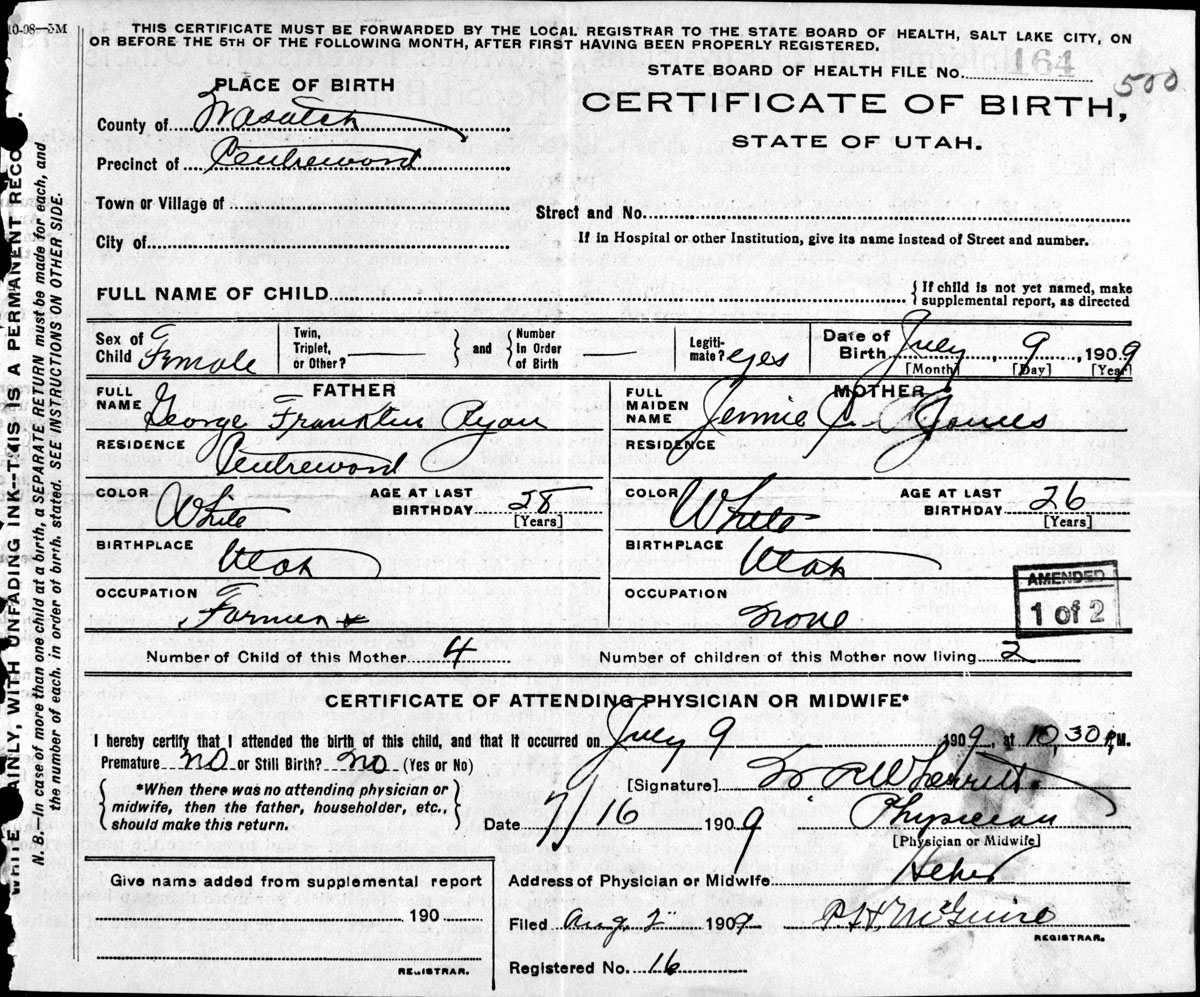 10-08—5M
THIS CERTIFICATE MUST BE FORWARDED BY THE LOCAL REGISTRAR TO THE STATE BOARD OF HEALTH, SALT LAKE CITY, ON
OR BEFORE THE 5TH OF THE FOLLOWING MONTH, AFTER FIRST HAVING BEEN PROPERLY REGISTERED.
STATE BOARD OF HEALTH FILE No. 164
500
PLACE OF BIRTH
CERTIFICATE OF BIRTH,
STATE OF UTAH.
County of Wasatch
Precinct of
Town or Village of
Street and No.
City of
If in Hospital or other Institution, give its name instead of Street and number.
FULL NAME OF CHILD
{ If child is not yet named, make
supplemental report, as directed
Sex of Child Female
Twin, Triplet, or Other? —
} and {
Number In Order of Birth —
Legiti-mate? yes
Date of Birth July 9, 1909
[Month] [Day] [Year]
FATHER
FULL NAME George Franklin Ryan
RESIDENCE
COLOR White
AGE AT LAST BIRTHDAY 28
[Years]
BIRTHPLACE Utah
OCCUPATION Farmer
MOTHER
FULL MAIDEN NAME Jennie C. Jones
RESIDENCE
COLOR White
AGE AT LAST BIRTHDAY 26
[Years]
BIRTHPLACE Utah
OCCUPATION None
AMENDED
1 of 2
Number of Child of this Mother 4
Number of children of this Mother now living 2
CERTIFICATE OF ATTENDING PHYSICIAN OR MIDWIFE*
I hereby certify that I attended the birth of this child, and that it occurred on July 9 1909, at 10,30 P.M.
Premature no or Still Birth? no (Yes or No)
{ *When there was no attending physician or
midwife, then the father, householder, etc.,
should make this return. }
[Signature]
Date 7/16 1909
Physician
[Physician or Midwife]
Address of Physician or Midwife Heber
Give name added from supplemental report
190
REGISTRAR.
Filed Aug 2" 1909
P. H. McGuire
REGISTRAR.
Registered No. 16
AINLY, WITH UNFADING INK—THIS IS A PERMANENT RECO
N. B.—In case of more than one child at a birth, a SEPARATE RETURN must be made for each, and
the number of each, in order of birth, stated. SEE INSTRUCTIONS ON OTHER SIDE.